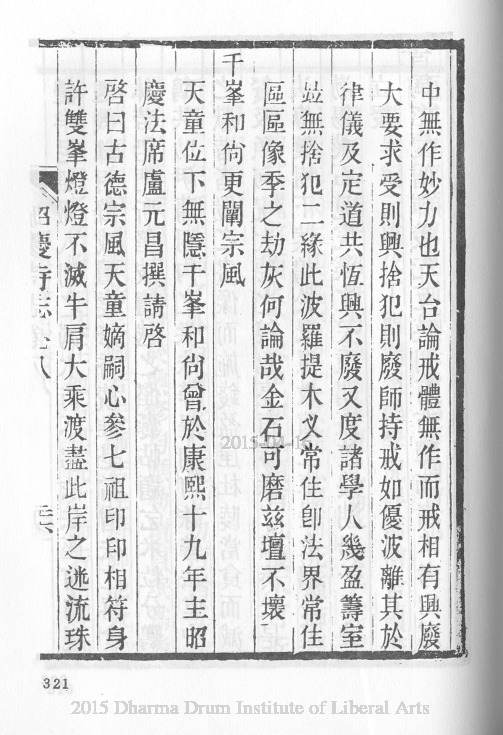 中無作妙力也天台論戒體無作而戒相有興廢
大要求受則興捨犯則廢師持戒如優波離其於
律儀及定道共恆興不廢又度諸學人幾盈籌室
竝無捨犯二緣此波羅提木义常住卽法界常住
區區像季之劫灰何論哉金石可磨玆壇不壞
千峯和尙更闡宗風
天童位下無隱千峯和尙曾於康熙十九年主昭
慶法席盧元昌撰請啓
啓曰古德宗風天童嫡嗣心參七祖印印相符身
許雙峯燈燈不滅牛肩大乘渡盡此岸之迷流珠
昭慶寺志 卷八
2015
321
2015 Dharma Drum Institute of Liberal Arts